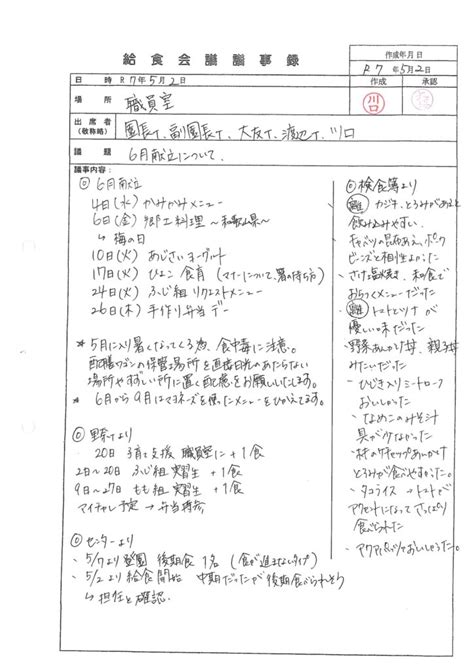 給食会議議事録
作成年月日
R7年5月2日
作成 承認
川口
日時 R7年5月2日
場所 職員室
出席者
(敬称略)
園長T、副園長T、大友T、渡辺T、川口
議題 6月献立について
議事内容:
◎6月献立
4日(水) かみかみメニュー
6日(金) 郷土料理 ~和歌山県~
↳ 梅の日
10日(火) あじさいヨーグルト
17日(火) ひよこ 食育 (マナーについて、箸の持ち方)
24日(火) ふじ組 リクエストメニュー
26日(木) 手作り弁当デー
* 5月に入り暑くなってくる為、食中毒に注意。
配膳ワゴンの保管場所を直接日光のあたらない
場所やすずしい所に置く配慮をお願いいたします。
* 6月から9月はマヨネーズを使ったメニューをひかえてます。
20日 子育て支援 職員室に+1食
2日~20日 ふじ組 実習生 +1食
9日~27日 もも組 実習生 +1食
マイチャレ予定 → 弁当持参
◎センターより
・5/7より登園 後期食 1名 (食が進まないタイプ)
・5/2より給食開始 中期だったが後期食べられそう
↳ 担任と確認.
◎検食簿より
カジキ、とろみがあると
飲み込みやすい。
キャベツの昆布あえ、ポーク
ビーンズと相性よかった
・さけの塩焼き、和食で
おちつくメニューだった
トマトとツナが
優しい味だった
・野菜あんかけ丼、親子丼
みたいだった
・ひじき入りミートローフ
おいしかった
・なめこのみそ汁
具が少なかった
とろみが食べやすかった。
・タコライス → トマトが
アクセントになって さっぱり
食べられた
・アクアパッツァおいしかった。